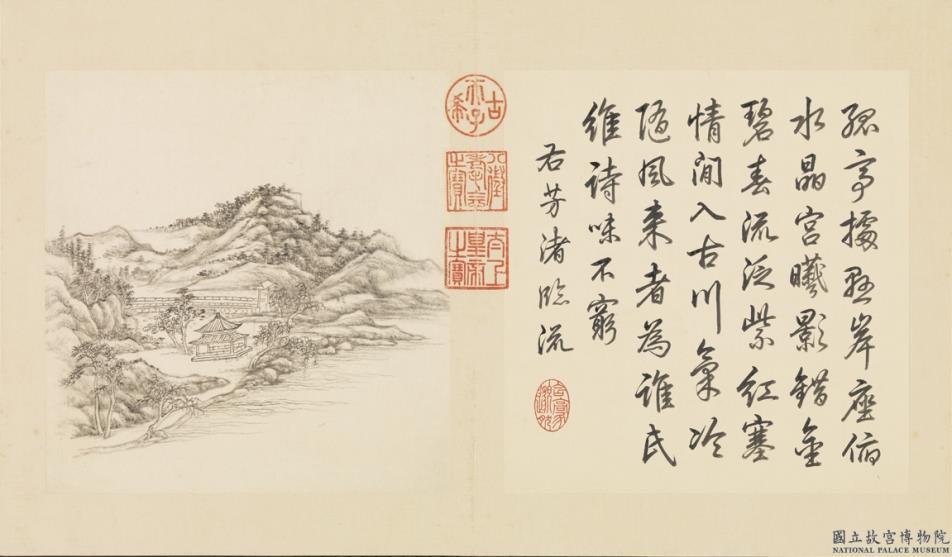 孤亭據岸座俯
水晶宮曦影錯金
碧春流泛紫紅塞
情閒入古川氣冷
隨風來者為誰氏
維詩味不窮
右芳渚臨流
古希天子
八徵耄念之寶
太上皇帝之寶
國立故宮博物院
NATIONAL PALACE MUSEUM